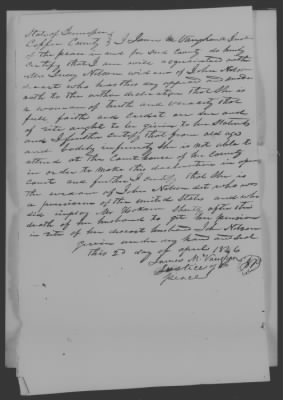 State of Tennessee
County } I James M Vaughan a Just
of the peace in and for said county do hereby
certify that I am well acquainted with
Mrs Lucy Nelson widow of John Nelson
deceast who has this day appeared and made
oath to the within declaration that She is
a woman of truth and veracity that
full faith and credit are due and
of rite ought to be given to her Statements
and I further certify that from old age
and bodily infirmity She is not able to
attend at the Court house of her County
in order to make this declaration in open
court and further I certify that She is
the widow of John Nelson dst who was
a pensioner of the United States and who
did employ Mr Shortly after the
death of her husband to get her pension
in rite of her deceast husband John Nelson
Given under my hand and seal
this 2d day of april 1846
James M Vaughan
Justice of the
peace